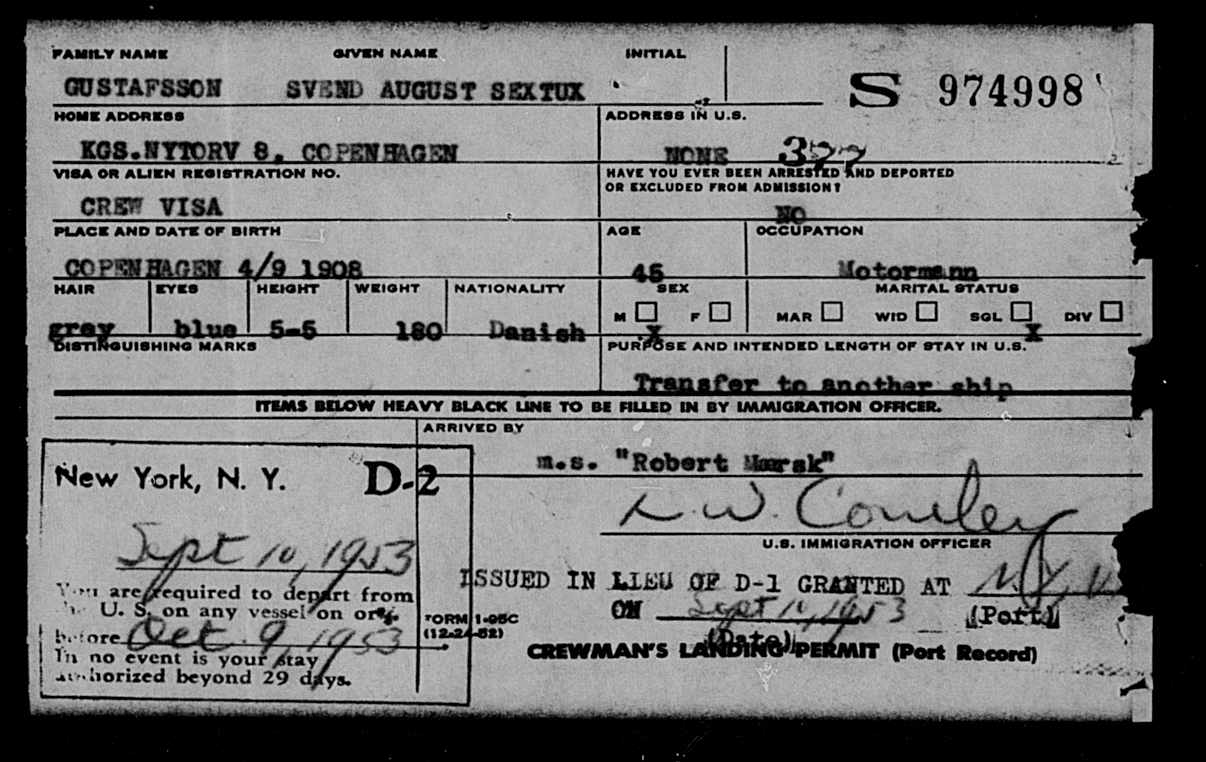 FAMILY NAME GIVEN NAME INITIAL
GUSTAFSSON SVEND AUGUST SEXTUX S 974998
HOME ADDRESS ADDRESS IN U.S.
KGS.NYTORV 8, COPENHAGEN NONE 377
VISA OR ALIEN REGISTRATION NO. HAVE YOU EVER BEEN ARRESTED AND DEPORTED
OR EXCLUDED FROM ADMISSION?
CREW VISA NO
PLACE AND DATE OF BIRTH AGE OCCUPATION
COPENHAGEN 4/9 1908 45 Motormann
HAIR EYES HEIGHT WEIGHT NATIONALITY SEX MARITAL STATUS
M F MAR WID SGL DIV
grey blue 5-5 180 Danish X X
DISTINGUISHING MARKS PURPOSE AND INTENDED LENGTH OF STAY IN U.S.
Transfer to another ship
ITEMS BELOW HEAVY BLACK LINE TO BE FILLED IN BY IMMIGRATION OFFICER.
ARRIVED BY
m.s. "Robert Mærsk"
New York, N. Y. D-2
Sept 10, 1953
You are required to depart from
the U. S. on any vessel on or
before Oct. 9, 1953
In no event is your stay
authorized beyond 29 days.
L. W. Cowley
U.S. IMMIGRATION OFFICER
ISSUED IN LIEU OF D-1 GRANTED AT N.Y.
(Port)
ON Sept 10, 1953
(Date)
FORM I-95C
(12-24-52)
CREWMAN'S LANDING PERMIT (Port Record)